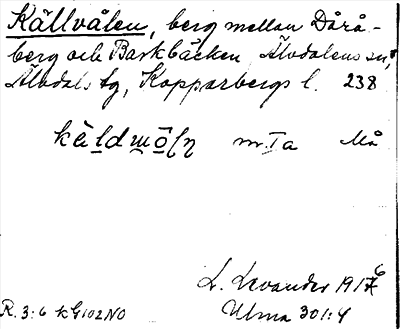 Källvålen, berg mellan Dårå-
berg och Barkbäcken, Älvdalens sn,
Älvdals tg, Kopparbergs l. 238
m. Ia Må
L. Levander 1917
R. 3:6 kG102NO Ulma 301:4